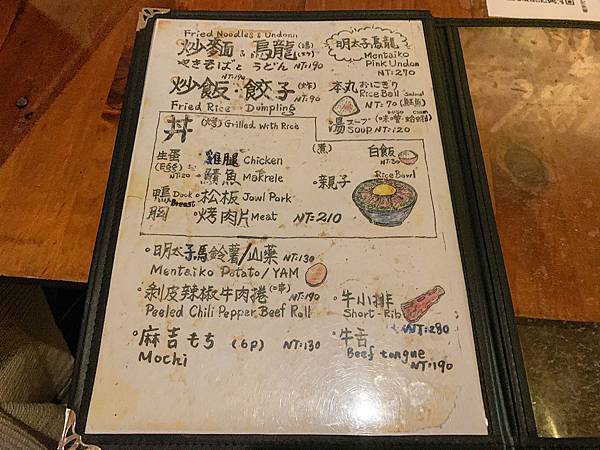 Fried Noodles & Undonn
炒麵 & 烏龍 (湯)
やきそばと うどん NT:190
明太子烏龍
Mentaiko
Pink Undon
NT:270
NT:190
炒飯・餃子
NT:90
Fried Rice Dumpling
本丸 おにぎり
Rice Ball Salmon
NT:70 (鮭魚)
湯 スープ (味噌・蛤蜊)
SOUP NT:120
丼 (烤) Grilled with Rice
生蛋
NT:20
雞腿 Chicken
・鯖魚 Makrele
鴨 Duck
胸 Breast
・松板 Jowl Pork
・烤肉片 Meat NT:210
(煮)
・親子
白飯
NT:30
Rice Bowl
・明太子馬鈴薯/山藥 NT:130
Mentaiko Potato/YAM
・剝皮辣椒牛肉捲 (串) NT:190
Peeled Chili Pepper Beef Roll
・麻吉 もち (6P) NT:130
Mochi
・牛小排
Short-Rib
NT:280
・牛舌
Beef tongue
NT:190